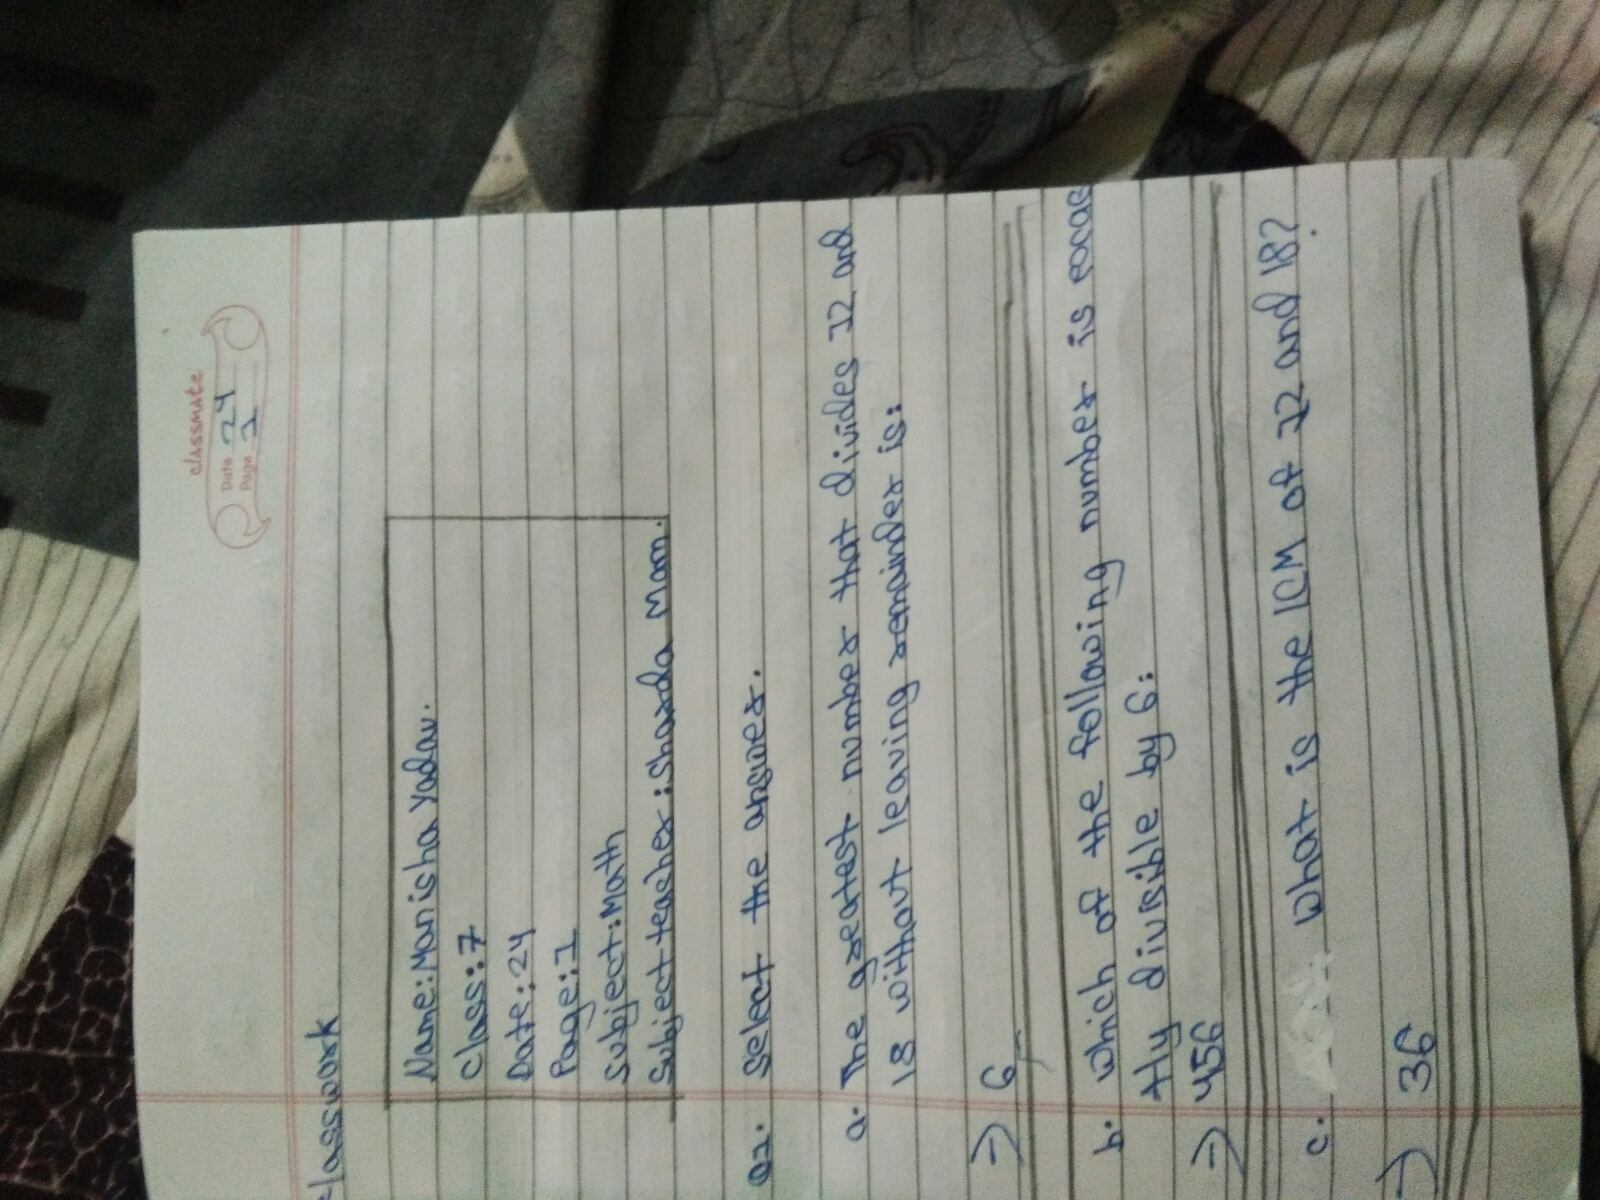 classmate
Date 24
Page 1
classwork
Name: Manisha Yadav.
Class: 7
Date: 24
Page: 1
Subject: Math
Subject teacher: Sharda Mam.
Q1. Select the answer.
a. The greatest number that divides 12 and
18 without leaving remainder is:
→ 6
b. which of the following number is excae
tly divisible by 6:
→ 456
c. What is the lCM of 12 and 18?
→ 36